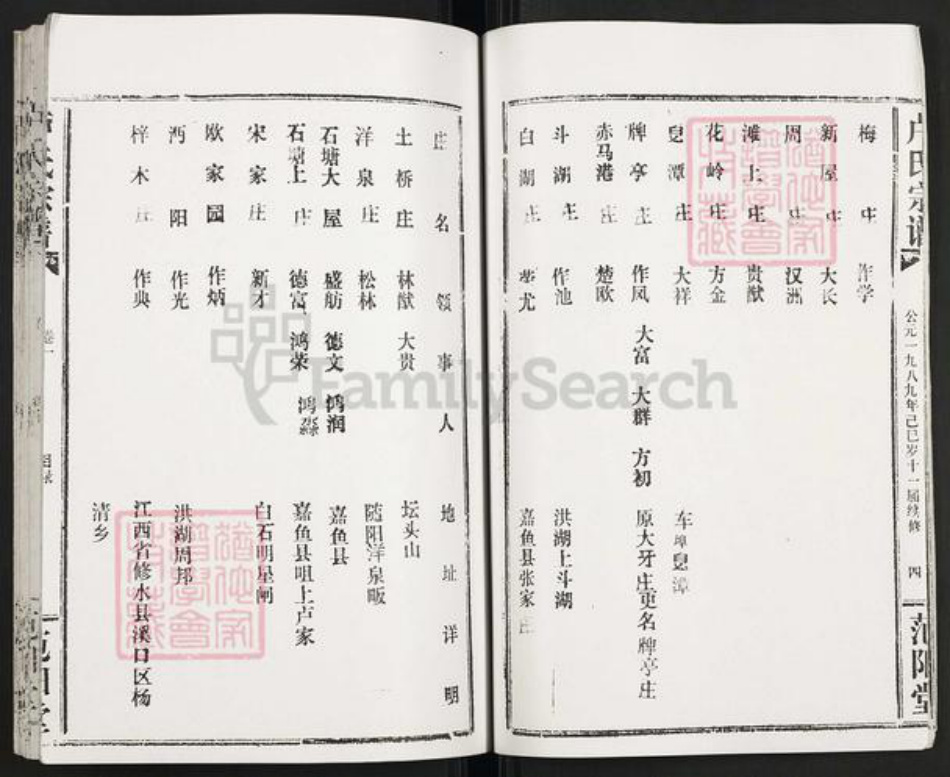 卢氏宗谱
公元一九八九年己巳岁十一届续修
四
范阳堂
梅 庄 作学
新屋 庄 大长
周 庄 汉洲
滩上庄 贵猷
花岭 庄 方金
皂潭 庄 大祥 车埠皂潭
牌亭 庄 作凤 大富 大群 方初 原大牙庄更名牌亭庄
赤马港 庄 楚欧
斗湖 庄 作池 洪湖上斗湖
白湖 庄 楚尤 嘉鱼县张家庄
庄名 领事人 地址详明
土桥庄 林猷 大贵 坛头山
洋泉庄 松林 随阳洋泉畈
石塘大屋 盛舫 德文 鸿润 嘉鱼县
石塘上庄 德富 鸿荣 鸿淼 嘉鱼县咀上卢家
宋家庄 新才 白石明星闸
欧家园 作炳
沔阳 作光 洪湖周邦
梓木庄 作典 江西省修水县溪口区杨
清乡
卷一
目录
FamilySearch